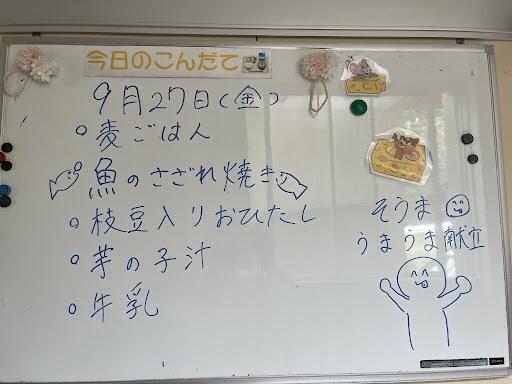 今日のこんだて
9月27日(金)
○麦ごはん
魚のさざれ焼き
○枝豆入りおひたし
○芋の子汁
○牛乳
そうま
うまうま献立